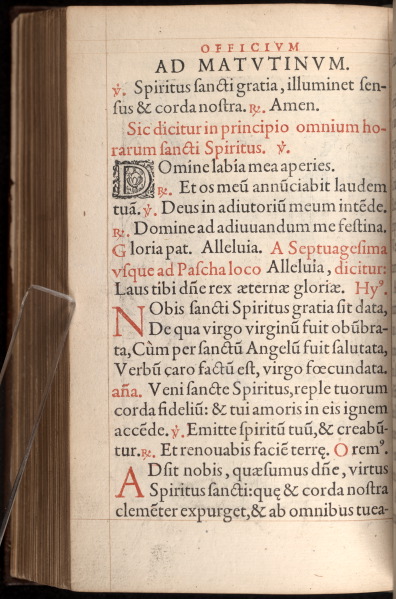 OFFICIVM
AD MATVTINVM.
℣. Spiritus ſancti gratia, illuminet ſen-
ſus & corda noſtra. ℞. Amen.
Sic dicitur in principio omnium ho-
rarum ſancti Spiritus. ℣.
Domine labia mea aperies.
℞. Et os meũ annũciabit laudem
tuã. ℣. Deus in adiutoriũ meum intẽde.
℞. Domine ad adiuuandum me feſtina.
Gloria pat. Alleluia. A Septuageſima
vſque ad Paſcha loco Alleluia, dicitur:
Laus tibi dñe rex æternæ gloriæ. Hyꝰ.
NObis ſancti Spiritus gratia ſit data,
De qua virgo virginũ fuit obũbra-
ta, Cùm per ſanctũ Angelũ fuit ſalutata,
Verbũ caro factũ eſt, virgo fœcundata.
aña. Veni ſancte Spiritus, reple tuorum
corda fideliũ: & tui amoris in eis ignem
accẽde. ℣. Emitte ſpiritũ tuũ, & creabũ-
tur. ℞. Et renouabis faciẽ terrę. Oremꝰ.
ADſit nobis, quæſumus dñe, virtus
Spiritus ſancti: quę & corda noſtra
clemẽter expurget, & ab omnibus tuea-